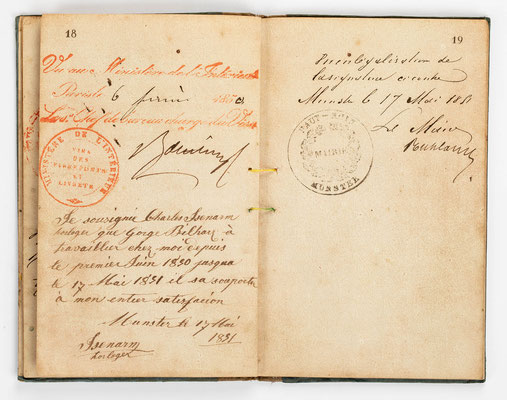 18
Vu au Ministère de l'Intérieur
Paris le 6 juin 1850
Le S. Chef de bureau chargé du Visa
MINISTÈRE DE L'INTÉRIEUR
VISA
DES
PASSEPORTS
ET
LIVRETS
Je sousignée Charles Isenarm
horloger que Gorge Bilharz à
travaillier chez moi depuis
le premier Juin 1850 jusqua
le 17 Mai 1851 il sa souporte
à mon entier satisfacion
Munster le 17 Mai
1851
Isenarm
horloger
19
Pour légalisation de
la signature ci contre
Munster le 17 Mai 1851
Le Maire
HAUT-RHIN
MAIRIE
MUNSTER